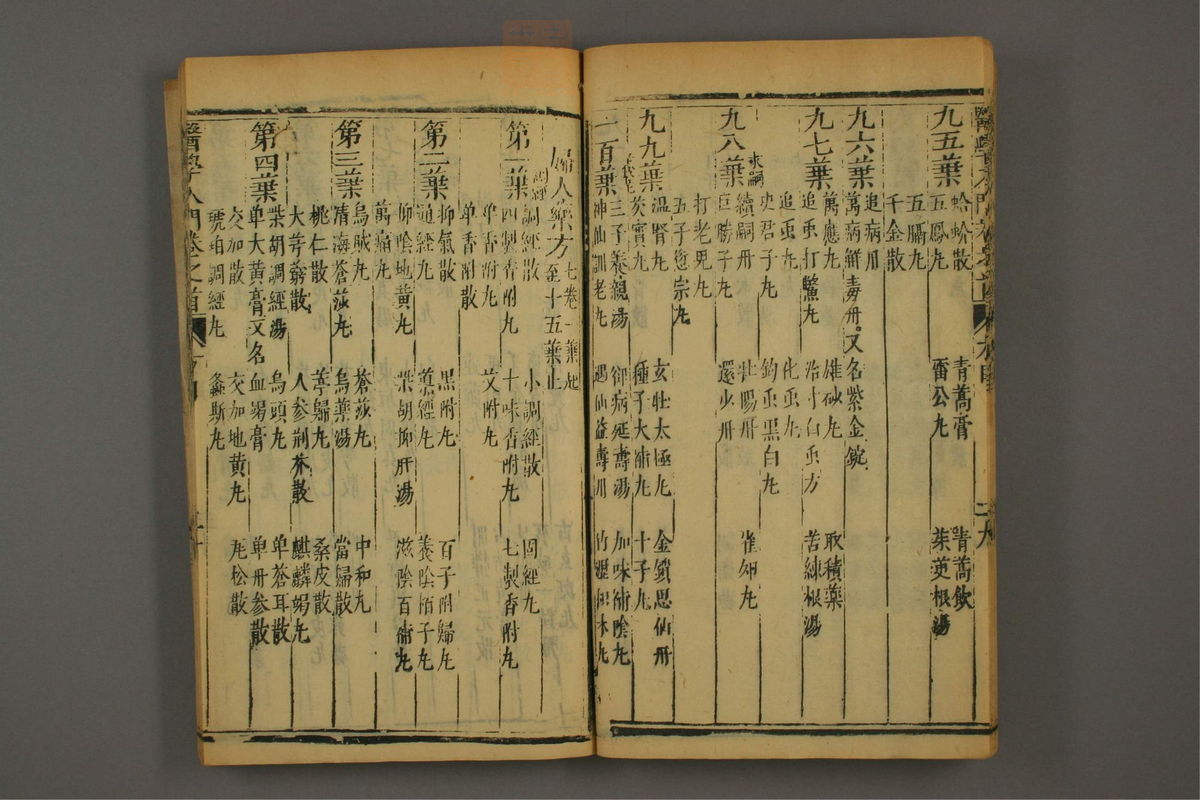 九五葉
蛤蚧散 青蒿膏 青蒿飲
五鳳丸 雷公丸 茱萸根湯
五膈丸
千金散
九六葉
追病丹
萬病解毒丹又名紫金錠
萬應丸 雄砂丸 取積藥
九七葉
追虫打鱉丸 治寸白虫方 苦練根湯
追虫丸 化虫丸
史君子丸 釣虫黑白丸
九八葉
求嗣
續嗣丹 壯陽丹
巨勝子丸 還少丹
打老兒丸
五子衍宗丸
九九葉
溫腎丸 玄牡太極丸 金鎖思仙丹
種子大補丸 十子丸
一百葉
三子養親湯 卻病延壽湯 加味補陰丸
神仙訓老丸 遇仙益壽丹
婦人藥方 七卷一葉起至十五葉止
第一葉
調經
調經散 小調經散 固經丸
四製香附丸 十味香附丸 七製香附丸
單香附丸 艾附丸
單香附散
第二葉
抑氣散 黑附丸 百子附歸丸
通經丸 養陰栢子丸
抑陰地黃丸 柴胡抑肝湯 滋陰百補丸
萬痛丸
第三葉
烏賊丸 蒼莎丸 中和丸
清海蒼莎丸 烏藥湯 當歸散
桃仁散 芎歸丸 桑皮散
大芎藭散 人參荊芥散 麒麟竭丸
第四葉
柴胡調經湯 烏頭丸 單蒼耳散
單大黃膏又名血竭膏 單丹參散
交加散 交加地黃丸 丸松散
琥珀調經丸 螽斯丸
醫學入門卷之首